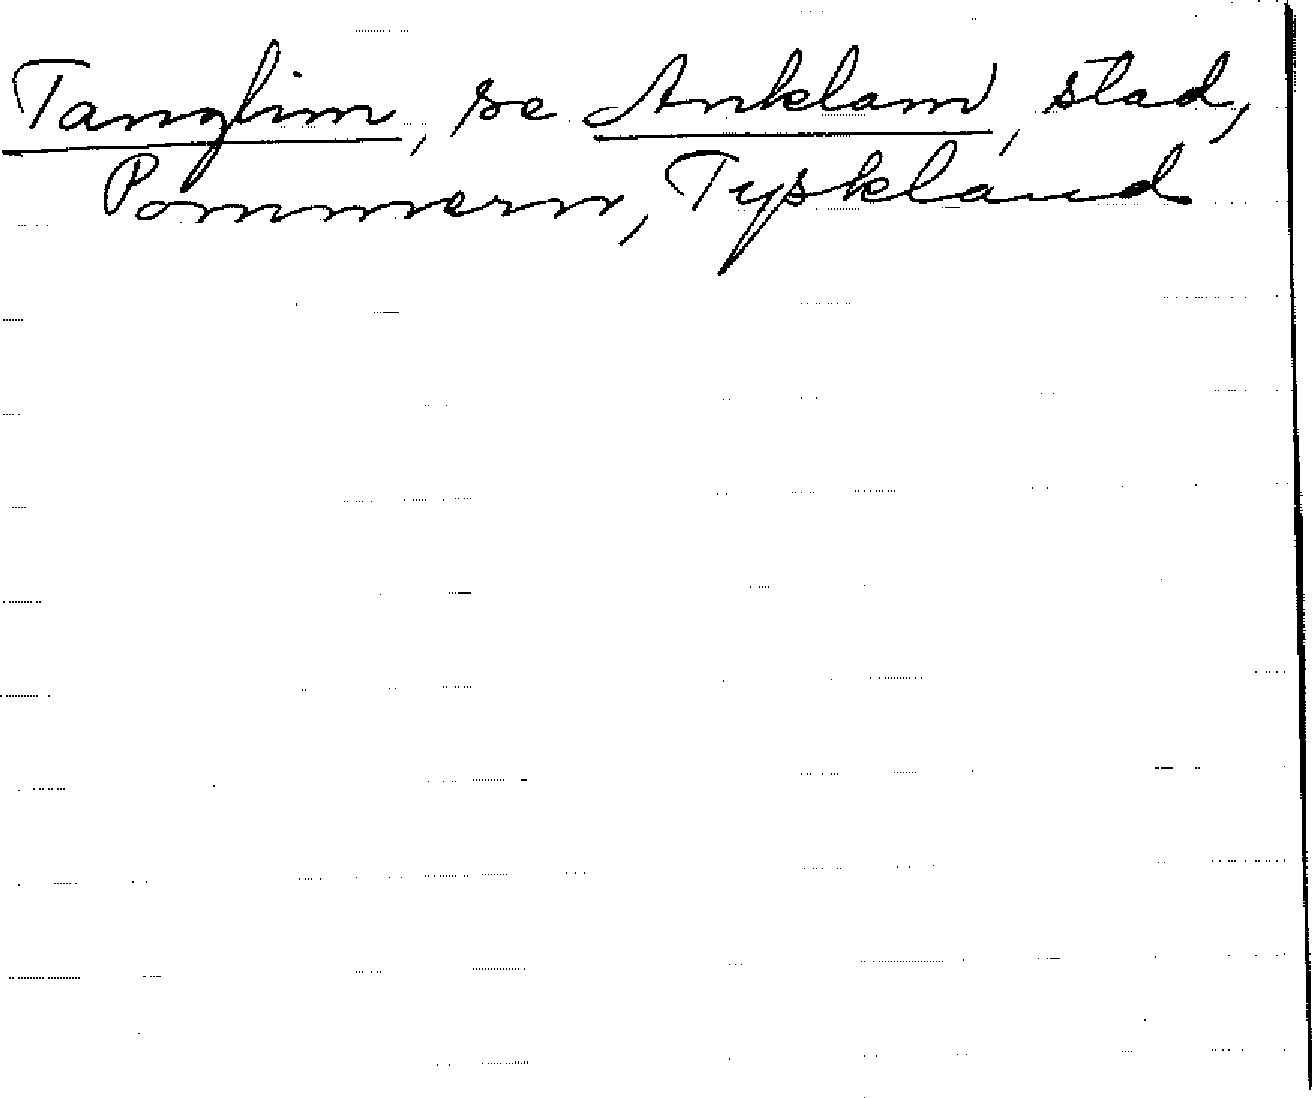 Tanglim, se Anklam, stad,
Pommern, Tyskland